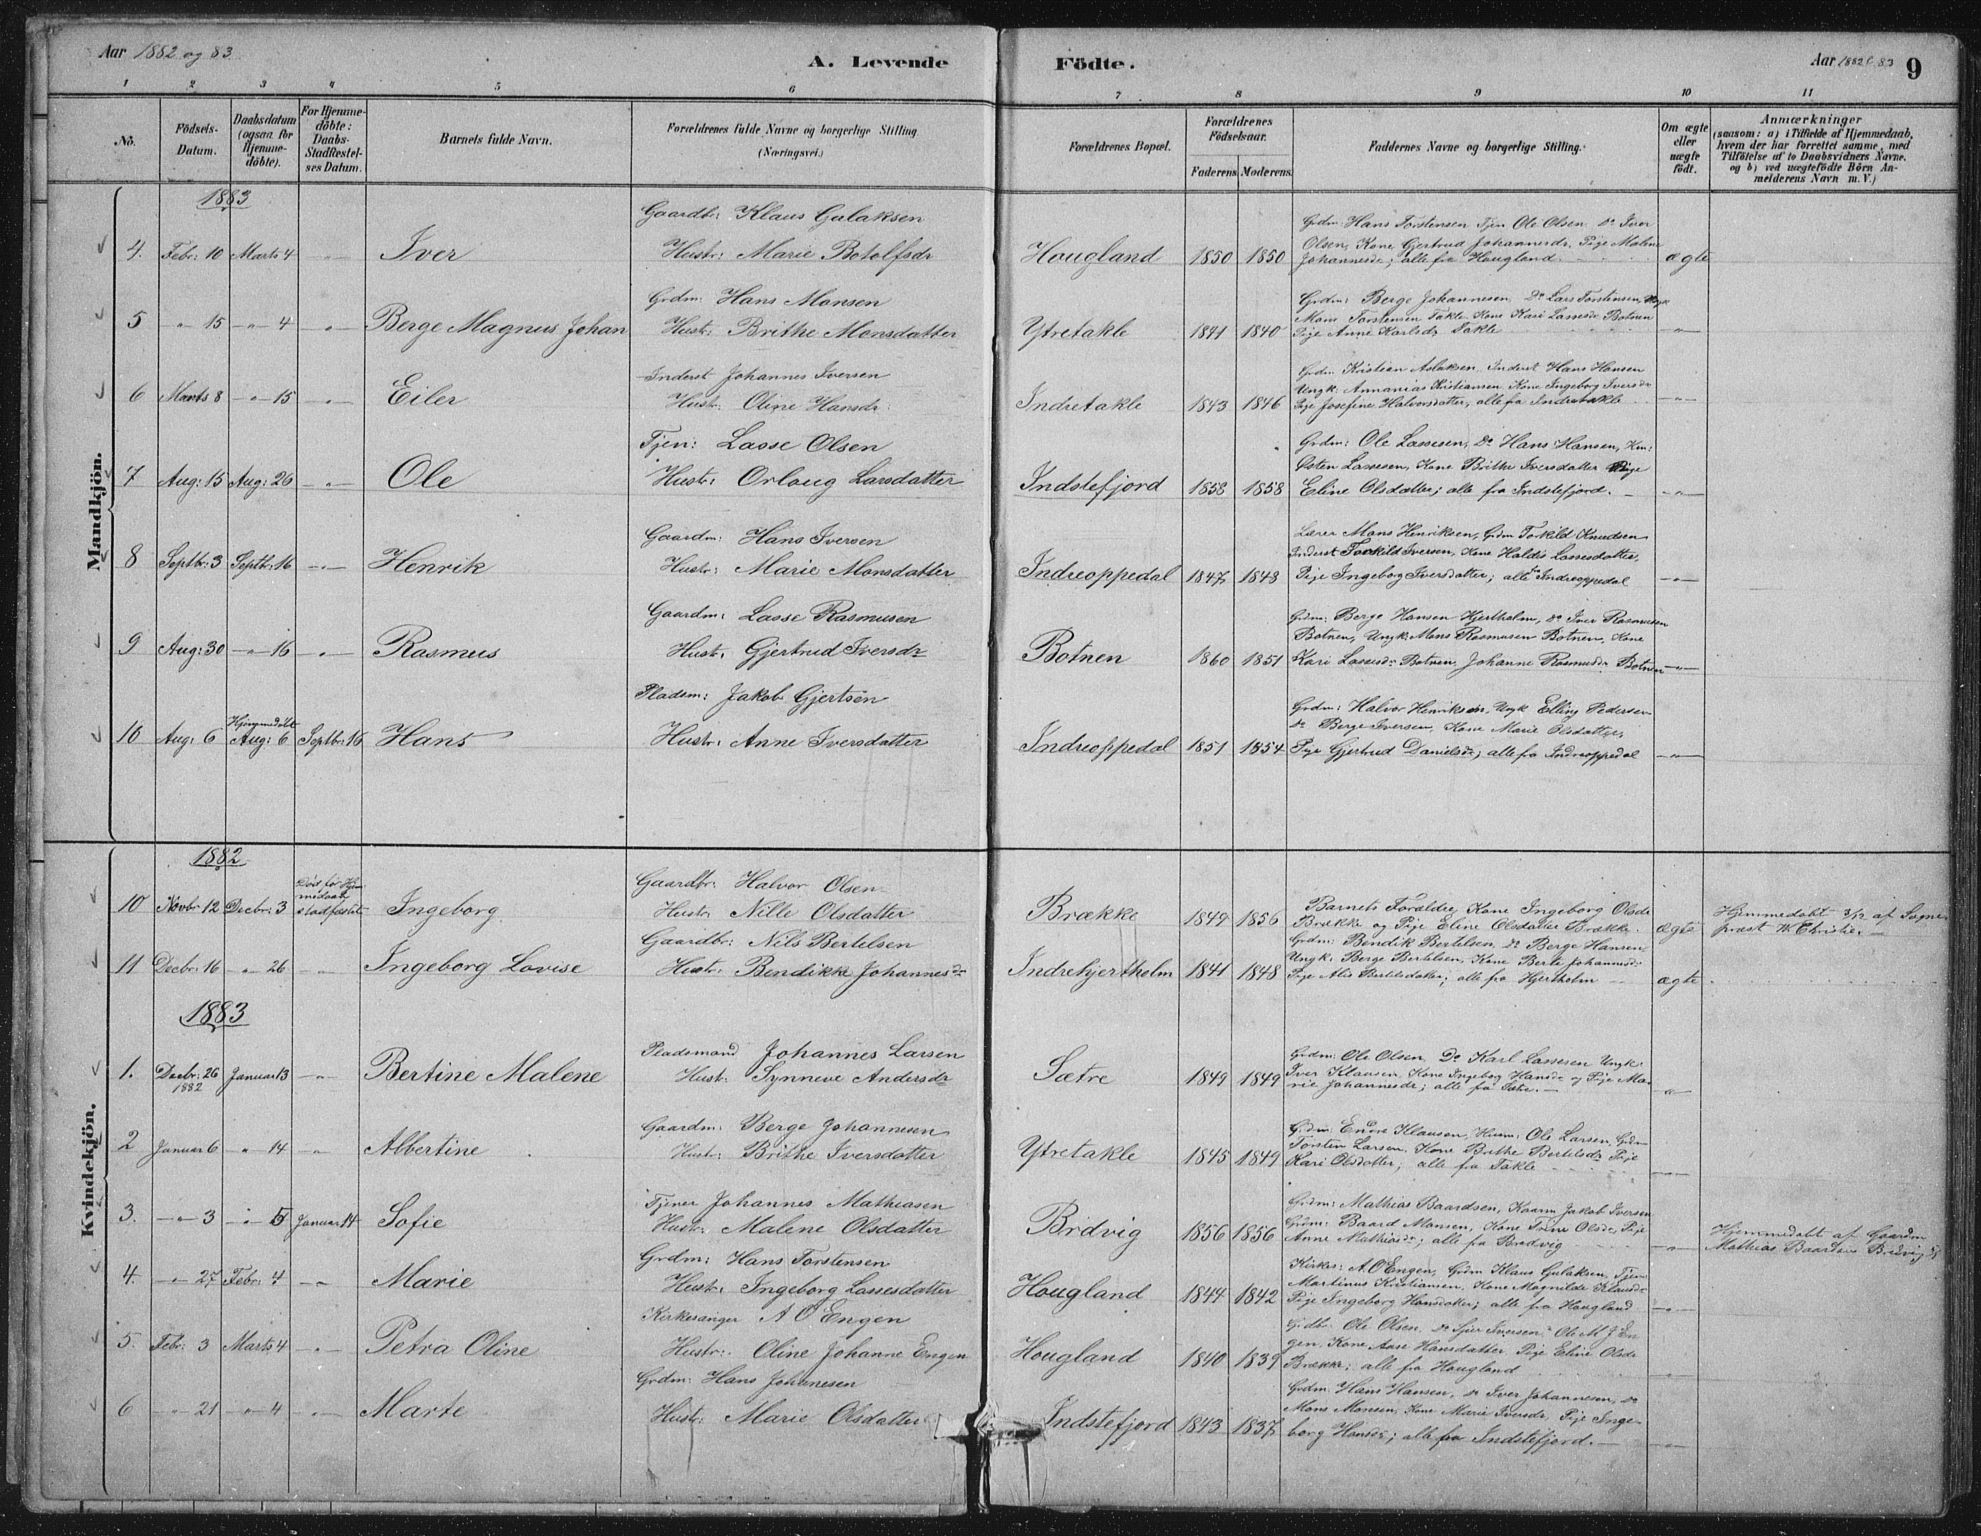 Aar 1882 og 83
A. Levende
Födte.
Aar 1882 & 83
9
1 2 3 4 5 6 7 8 9 10 11
No.
Födsels-Datum.
Daabsdatum (ogsaa for Hjemme-döbte).
For Hjemme-döbte: Daabs-Stadfestel-ses Datum.
Barnets fulde Navn.
Forældrenes fulde Navne og borgerlige Stilling. (Næringsvei.)
Forældrenes Bopæl.
Forældrenes Födselsaar.
Faderens. Moderens.
Faddernes Navne og borgerlige Stilling.
Om ægte eller uægte födt.
Anmærkninger
(saasom: a) i Tilfælde af Hjemmedaab, hvem der har forrettet samme, med Tilföielse af to Daabsvidners Navne, og b) ved uægtefödte Börn An-melderens Navn m. V.)
Mandkjön.
1883
Gaardbr: Klaus Galaksen
4. Febr: 10 Marts 4 -"- Iver Hustr: Marie Botolfsdr Hougland 1850 1850 ægte
Grdm: Hans Torstensen Tjen Ole Olsen Do Iver
Olsen, Kone Gjertrud Johannesdr, Pige Malene
Johannesdr; alle fra Hougland
Grdm: Hans Monsen
5 " 15 -"- 4 -"- Berge Magnus Johan Hustr: Brithe Monsdatter Ytretakle 1841 1840 -"-
Grdm: Berge Johannesen, Do Lars Torstensen, Ungk
Mons Torstensen Takle, Kone Kari Lassesdr Botnen
Pige Anne Karlsdr Takle
Inderst Johannes Iversen
6 Marts 8 -"- 15 -"- Eiler Hustr: Oline Hansdr. Indretakle 1843 1846 -"-
Grdm Kristien Aslaksen, Inderst Hans Hansen
Ungk. Annanias Kristiansen Kone Ingeborg Iversdr
Pige Josefine Halvorsdatter, alle fra Indretakle
Tjen: Lasse Olsen
7 Aug: 15 Aug: 26 -"- Ole Hustr: Orlaug Larsdatter Indstefjord 1858 1858 -"-
Grdm: Ole Lassesen, Do Hans Hansen,
Østen Lassesen, Kone Brithe Iversdatter Pige
Eline Olsdatter; alle fra Indstefjord.
Gaardm: Hans Iversen
8 Septbr: 3 Septbr: 16 -"- Henrik Hustr: Marie Monsdatter Indreoppedal 1847 1848 -"-
Lærer Mons Henriksen, Grdm Torkild Knudsen
Inderst Torkild Iversen, Kone Haldis Lassesdatter,
Pige Ingeborg Iversdatter; alle fra Indreoppedal
Gaardm: Lasse Rasmusen
9 Aug: 30 -"- 16 -"- Rasmus Hustr: Gjertrud Iversdr Botnen 1860 1851 -"-
Grdm: Berge Hansen Hjertholm, Do Iver Rasmusen
Botnen, Ungk: Mons Rasmusen Botnen, Kone
Kari Lassesdr Botnen, Johanne Rasmusdr Botnen
Pladsm: Jakob Gjertsen
10 Aug: 6 Hjemmedøbt Aug: 6 Septbr: 16 Hans Hustr: Anne Iversdatter Indreoppedal 1851 1854 -"-
Grdm: Halvor Henriksen, Ungk Elling Pedersen
Do Berge Iversen, Kone Marie Olsdatter,
Pige Gjertrud Danielsdr; alle fra Indreoppedal
Kvindekjön.
1882
Gaardbr: Halvor Olsen
10 Novbr 12 Decbr: 3 Død før Hjemmedaab stadfæstet Ingeborg Hustr: Nille Olsdatter Brække 1849 1856 ægte
Barnets Forældre, Kone Ingeborg Olsdr
Brække og Pige Eline Olsdatter Brække.
Hjemmedøbt 3/12 af Sogne-
præst W. Christie.
Gaardbr: Nils Bertelsen
11 Decbr: 16 " 26 " Ingeborg Lovise Hustr: Bendikke Johannesdr Indrehjertholm 1841 1848 ægte
Grdm: Bendik Bertelsen, Do Berge Hansen
Ungk: Berge Bertelsen, Kone Berte Johannesdr
Pige Alis Bertelsdatter; alle fra Hjertholm
1883
Pladsmand Johannes Larsen
1. Decbr: 26 1882 Januar 13 -"- Bertine Malene Hustr: Synneve Andersdr Sætre 1849 1849 -"-
Grdm: Ole Olsen, Do Karl Lassesen Ungk
Iver Klausen, Kone Ingeborg Hansdr og Pige Ma-
rie Johannesdr; alle fra
Gaardm: Berge Johannesen
2 Januar 6 " 14 -"- Albertine Hustr: Brithe Iversdatter Ytretakle 1845 1849 -"-
Grdm: Endre Klausen, Husm: Ole Larsen, Grdm
Torsten Larsen, Kone Brithe Bertelsdr Pige
Kari Olsdatter; alle fra Takle
Tjener Johannes Mathiasen
3. -"- 3 -"- 5 Januar 14 Sofie Hustr: Malene Olsdatter Bridvig 1856 1856 -"-
Grdm: Mathias Baardsen, Kaarm Jakob Iversen
Grdm: Baard Monsen, Kone Trine Olsdr, Pige
Anne Mathiasdr; alle fra Bredvig
Hjemmedøbt af Gaardm
Mathias Baardsen Bredvig
Grdm: Hans Torstensen
4. -"- 27 Febr: 4 -"- Marie Hustr: Ingeborg Lassesdatter Hougland 1844 1842 -"-
Kirkes: A. O Engen, Grdm Klaus Gulaksen, Tjen:
Martinus Kristiansen, Kone Magnilde Klausdr
Pige Ingeborg Hansdatter; alle fra Hougland
Kirkesanger A O Engen
5. Febr: 3 Marts 4 -"- Petra Oline Hustr: Oline Johanne Engen Hougland 1840 1839 "
Grdbr. Ole Olsen, Do Sjur Iversen, Ole M J En-
gen, Kone Aase Hansdatter Pige Eline Olsdr
Brække; alle fra Hougland
Grdm: Hans Johanesen
6 -"- 21 -"- 4 -"- Marte Hustr: Marie Olsdatter Indstefjord 1843 1837 -"-
Grdm: Hans Hansen, Do Iver Johannesen, Do
Mons Monsen, Kone Marie Iversdr, Pige Inge-
borg Hansdr; alle fra Indstefjord.